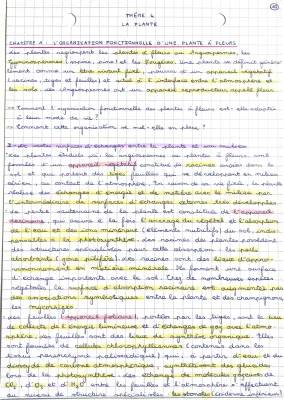 THÈME 4
LA PLANTE
CHAPITRE 1 : L'ORGANISATION FONCTIONNELLE D'UNE PLANTE À FLEURS
Les plantes regroupent les plantes à fleurs ou Angiospermes, les
Gymnospermes et les Fougères. Une plante se définit
comme un être vivant fixé, pourvu d'un appareil végétatif
(racines, tiges et feuilles) et situé à l'interface entre l'atmosphère et
les sols. Les Angiospermes ont un appareil reproducteur appelé fleur.
→ Comment l'organisation fonctionnelle des plantes à fleurs est-elle adaptée
à leur mode de vie ?
→ Comment cette organisation se met-elle en place ?
surfaces d'échanges entre la plante et son milieu
Les plantes étudiées ici, les angiospermes ou plantes à fleurs, sont
formées d'un appareil végétatif constitué de racines dans le
sol et qui portent des tiges feuillées qui se développent en milieu
aérien, au contact de l'atmosphère.
réalise des échanges d'énergie et de matière avec le milieu par
l'intermédiaire de surfaces d'échanges externes très développées.
La partie souterraine de la plante est constituée de l'appareil
racinaire, qui assure à la fois l'ancrage du végétal et l'absorption
de l'eau et des ions minéraux (éléments nutritifs) du sol, indis-
pensables à la photosynthèse. Les racines des plantes possèdent
des structures spécialisées pour cette absorption : les poils
absorbants (zone pilifère). Les racines sont des lieux d'appro-
visionnement en matière minérale. Ils forment une surface
d'échange importante avec le sol. Chez de nombreuses espèces
végétales, la surface d'absorption racinaire est augmentée par
des associations symbiotiques entre la plante et des champignons,
les mycorhizes.
Les feuilles (appareil foliaire), portées par les tiges, sont le lieu
de collecte de l'énergie lumineuse et d'échanges de gaz avec l'atmo-
sphère. Les feuilles sont des lieux de synthèse organique. Elles
sont formées de cellules chlorophylliennes (contenues dans les
tissus parenchyme palissadique) qui, à partir d'eau et de
dioxyde de carbone atmosphérique, synthétisent des glucides
lors de la photosynthèse. Les échanges
CO₂, d'O₂ et d'H₂O entre les feuilles et l'atmosphère s'effectuent
au niveau de structures spécialisées : les stomates